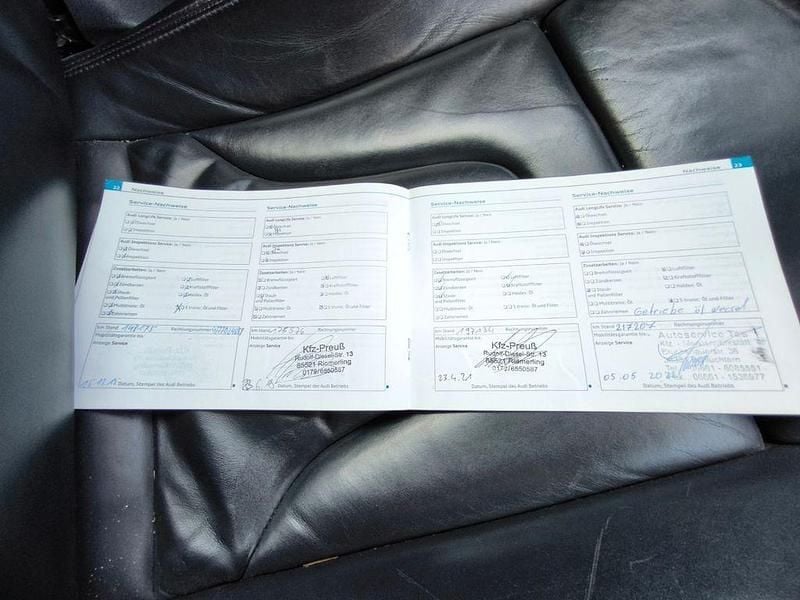 22 Nachweise
Service-Nachweise
Audi LongLife Service: Ja / Nein
Ölwechsel
Inspektion
Audi Inspektions Service: Ja / Nein
Ölwechsel
Inspektion
Zusatzarbeiten: Ja / Nein
Bremsflüssigkeit
Luftfilter
Zündkerzen
Kraftstofffilter
Staub-
und Pollenfilter
Haldex: Öl
Multitronic: Öl
S tronic: Öl und Filter
Zahnriemen
km Stand
Rechnungsnummer
Mobilitätsgarantie bis:
Anzeige Service
Datum, Stempel des Audi Betriebs
Service-Nachweise
Audi LongLife Service: Ja / Nein
Ölwechsel
Inspektion
Audi Inspektions Service: Ja / Nein
Ölwechsel
Inspektion
Zusatzarbeiten: Ja / Nein
Bremsflüssigkeit
Luftfilter
Zündkerzen
Kraftstofffilter
Staub-
und Pollenfilter
Haldex: Öl
Multitronic: Öl
S tronic: Öl und Filter
Zahnriemen
km Stand
Rechnungsnummer
Mobilitätsgarantie bis:
Anzeige Service
Kfz-Preuß
Rudolf-Diesel-Str. 13
85521 Riemerling
0172/6550587
Datum, Stempel des Audi Betriebs
Nachweise 23
Service-Nachweise
Audi LongLife Service: Ja / Nein
Ölwechsel
Inspektion
Audi Inspektions Service: Ja / Nein
Ölwechsel
Inspektion
Zusatzarbeiten: Ja / Nein
Bremsflüssigkeit
Luftfilter
Zündkerzen
Kraftstofffilter
Staub-
und Pollenfilter
Haldex: Öl
Multitronic: Öl
S tronic: Öl und Filter
Zahnriemen
km Stand 197134
Rechnungsnummer
Mobilitätsgarantie bis:
Anzeige Service
Kfz-Preuß
Rudolf-Diesel-Str. 13
85521 Riemerling
0172/6550587
23.4.21
Datum, Stempel des Audi Betriebs
Service-Nachweise
Audi LongLife Service: Ja / Nein
Ölwechsel
Inspektion
Audi Inspektions Service: Ja / Nein
Ölwechsel
Inspektion
Zusatzarbeiten: Ja / Nein
Bremsflüssigkeit
Luftfilter
Zündkerzen
Kraftstofffilter
Staub-
und Pollenfilter
Haldex: Öl
Multitronic: Öl
S tronic: Öl und Filter
Zahnriemen
Getriebe öl
km Stand 217207
Rechnungsnummer
Mobilitätsgarantie bis:
Anzeige Service
Autoservice
05.05
Datum, Stempel des Audi Betriebs